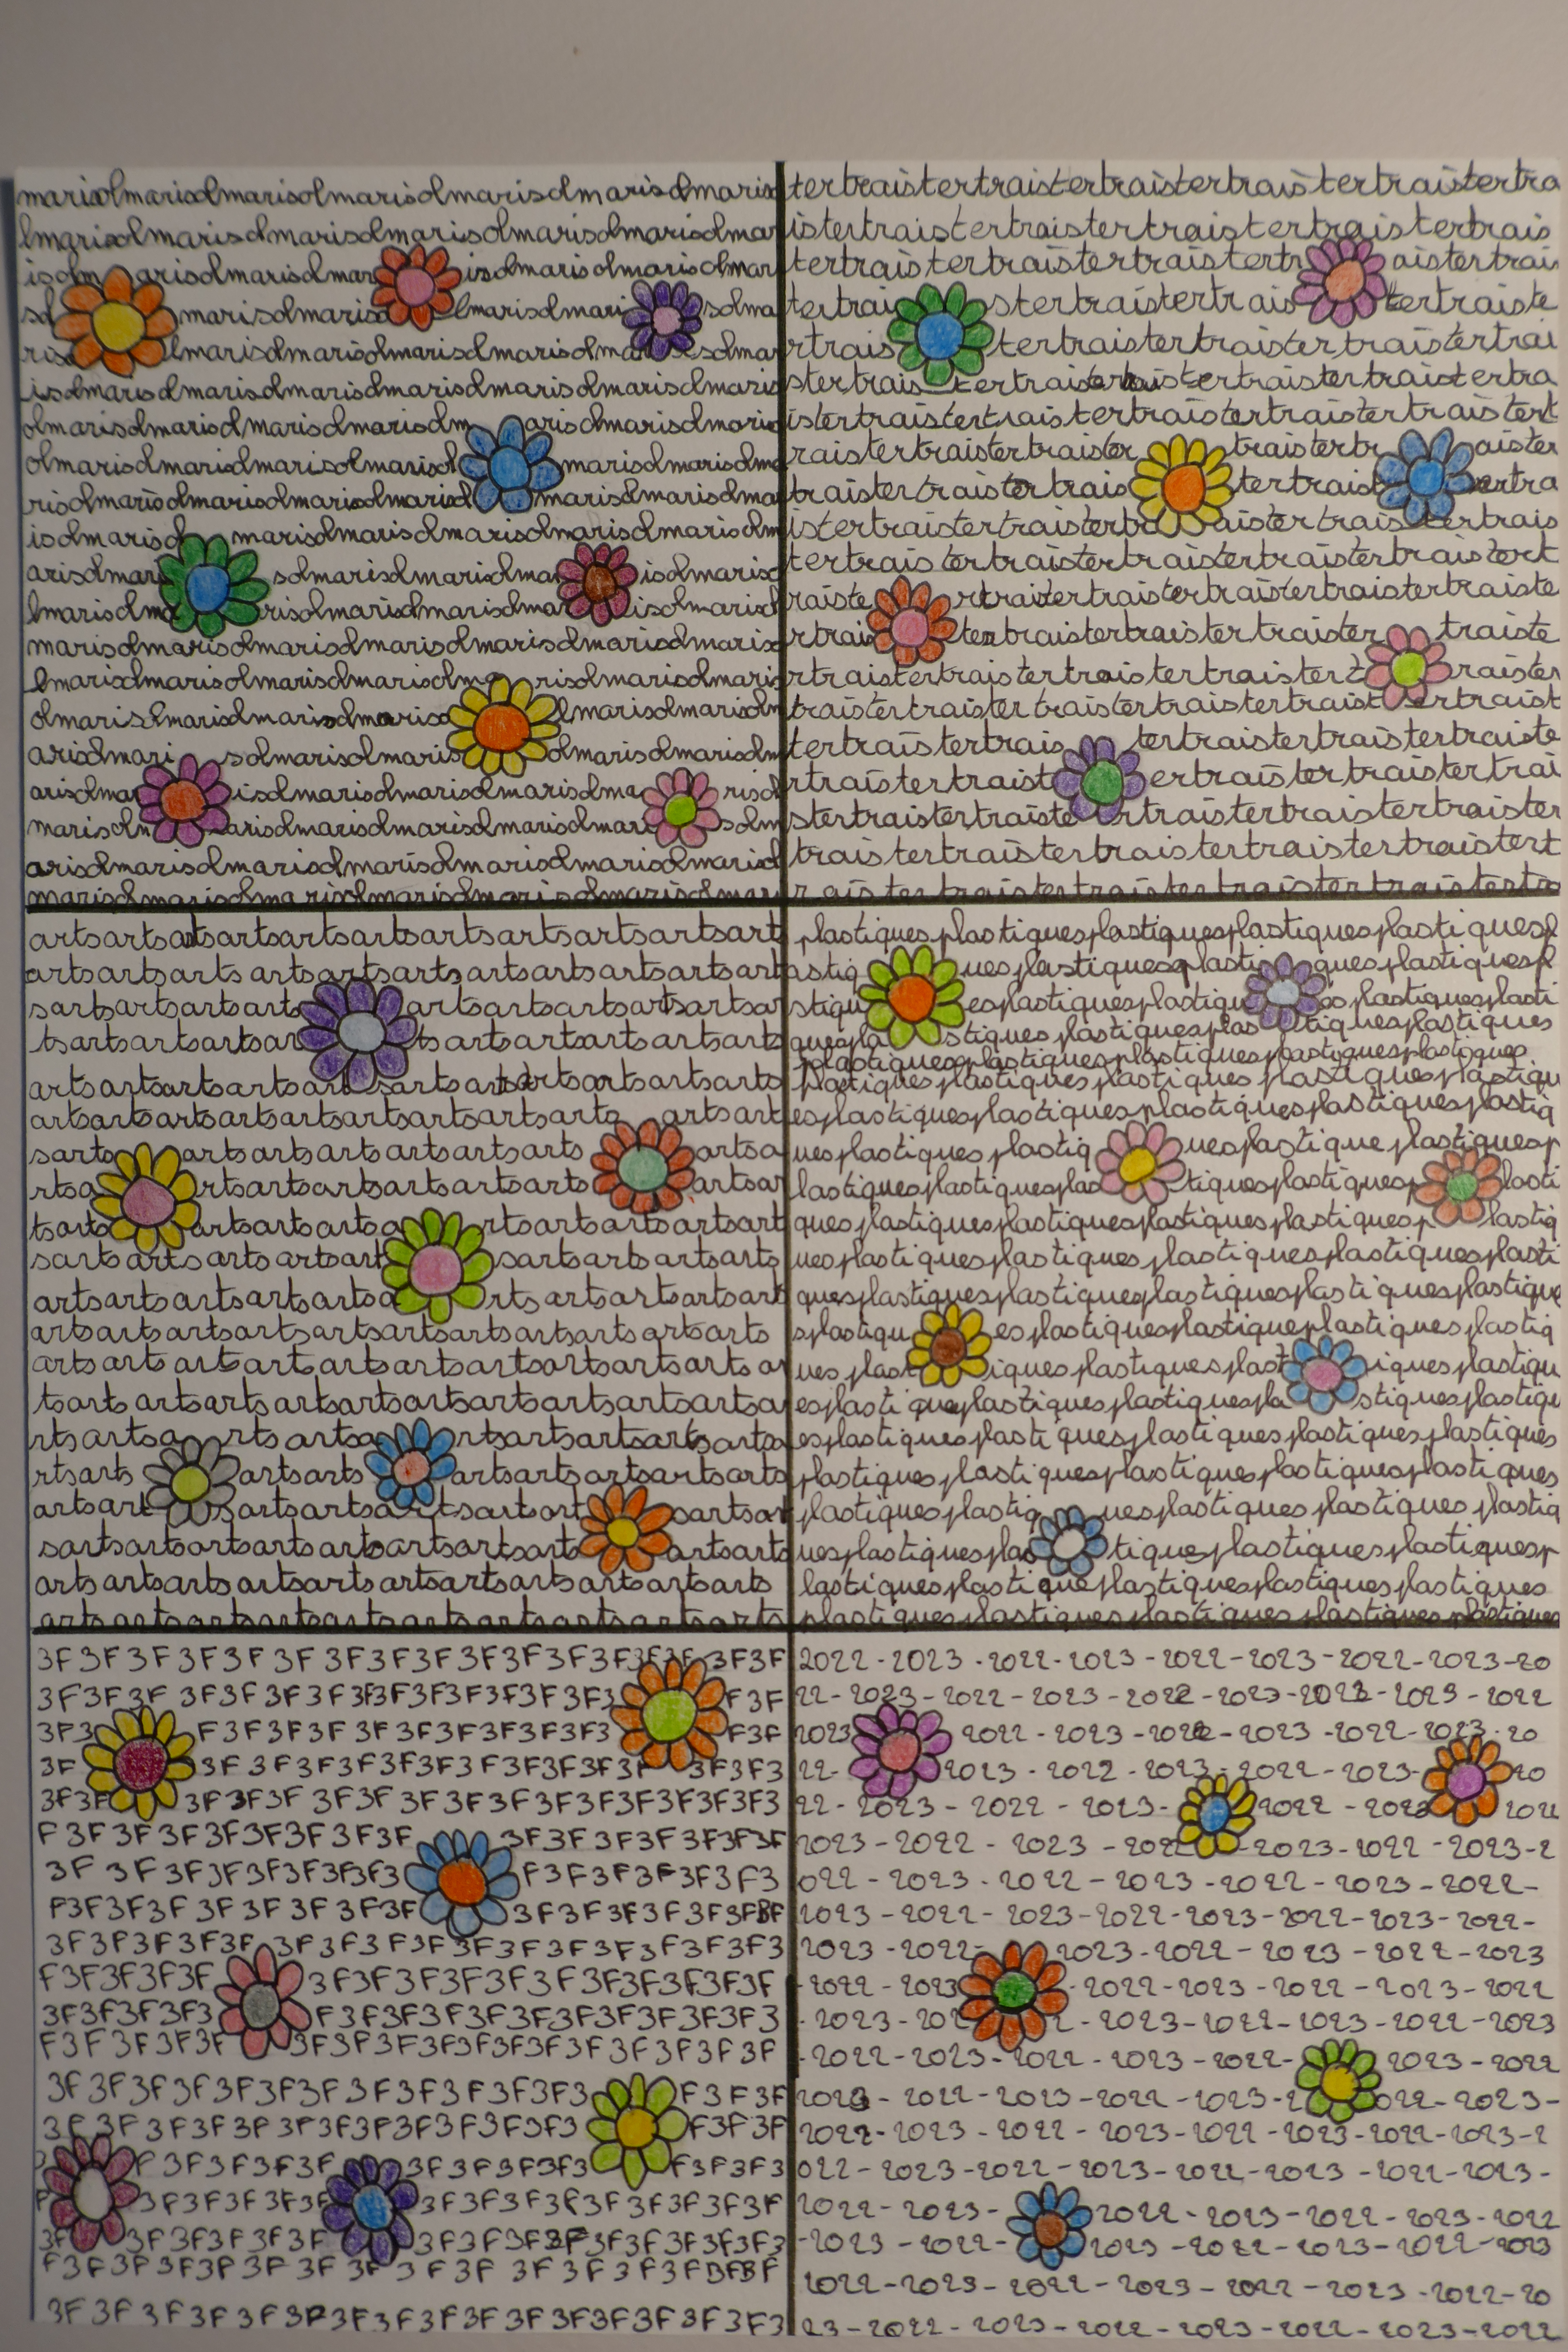 marisolmarisolmarisolmarisolmarisolmarisolmaris
lmarisolmarisolmarisolmarisolmarisolmarisolmar
isolm arisolmarisolmar isolmarisolmarisolmar
so marisolmariso lmarisolmari solma
ris lmarisolmarisolmarisolmarisolmarisolma solmar
isolmarisolmarisolmarisolmarisolmarisolmaris
olmarisolmarisolmarisolmarisolm arisolmarisol
olmarisolmarisolmarisolmarisol marisolmarisolma
risolmarisolmarisolmarisolmarisol marisolmarisolma
isolmarisol marisolmarisolmarisolmarisolmarisolm
arisolmar solmarisolmarisolma isolmariso
lmarisolma risolmarisolmarisolmar isolmarisol
marisolmarisolmarisolmarisolmarisolmarisolmaris
lmarisolmarisolmarisolmarisolma risolmarisolmaris
olmarisolmarisolmarisolmariso lmarisolmarisolm
arisolmari solmarisolmaris olmarisolmarisolm
arisolmar isolmarisolmarisolmarisolma risol
marisolm arisolmarisolmarisolmarisolmari solm
arisolmarisolmarisolmarisolmarisolmarisolmarisol
marisolmarisolmarisolmarisolmarisolmarisolmar
tertraistertraistertraistertraistertraistertra
istertraistertraistertraistertraistertrais
tertraistertraistertraistertr aistertrai
tertrai stertraistertrais tertraiste
rtrais tertraistertraistertraistertrai
stertrais tertraistertraistertraistertraistertra
istertraistertraistertraistertraistertraistert
raistertraistertraister traistertr aister
traistertraistertrais tertraist ertra
istertraistertraistertra aistertraistertrais
tertraistertraistertraistertraistertraistert
raiste rtraistertraistertraistertraistertraiste
rtrais tertraistertraistertraister traiste
rtraistertraistertraistertraistert raister
traistertraistertraistertraistertraist ertraist
tertraistertrais tertraistertraistertraiste
rtraistertraist ertraistertraistertrai
stertraistertraiste rtraistertraistertraister
traistertraistertraistertraistertraistert
raistertraistertraistertraistertraistertra
artsartsartsartsartsartsartsartsartsartsart
artsartsartsartsartsartsartsartsartsartsart
sartsartsartsarts artsartsartsartsartsar
tsartsartsartsar tsartsartsartsartsarts
artsartsartsartsart sartsartsartsartsartsarts
artsartsartsartsartsartsartsartsarts artsart
sarts artsartsartsartsartsarts artsa
rtsa rtsartsartsartsartsarts artsar
tsarts artsartsartsa rtsartsartsartsart
sartsartsartsartsart sartsartsartsarts
artsartsartsartsartsa rtsartsartsartsart
artsartsartsartsartsartsartsartsartsartsarts
artsartsartsartsartsartsartsartsartsartsar
tsartsartsartsartsartsartsartsartsartsa
rtsartsa rtsartsa rtsartsartsartsartsa
rtsarts artsarts artsartsartsartsarts
artsart sartsartsartsartsart sartsar
sartsartsartsartsartsartsartsarts artsarts
artsartsartsartsartsartsartsartsartsartsarts
artsartsartsartsartsartsartsartsartsartsarts
plastiquesplastiquesplastiquesplastiquesplastiquesp
lastiq uesplastiquesplasti quesplastiquesp
stiqu esplastiquesplastiqu esplastiquesplasti
quespla stiquesplastiquesplas tiquesplastiques
plastiquesplastiquesplastiquesplastiquesplastiques
plastiquesplastiquesplastiquesplastiquesplastiqu
esplastiquesplastiquesplastiquesplastiquesplastiq
uesplastiquesplastiq uesplastiqueplastiquesp
lastiquesplastiquesplas tiquesplastiquesp lasti
quesplastiquesplastiquesplastiquesplastiquesp lastiq
uesplastiquesplastiquesplastiquesplastiquesplasti
quesplastiquesplastiquesplastiquesplastiquesplastique
splastiqu esplastiquesplastiquesplastiquesplastiq
uesplast iquesplastiquesplast iquesplastiqu
esplastiquesplastiquesplastiquespla stiquesplastiqu
esplastiquesplastiquesplastiquesplastiquesplastiques
plastiquesplastiquesplastiquesplastiquesplastiques
plastiquesplastiq uesplastiquesplastiquesplastiq
uesplastiquesplas tiquesplastiquesplastiquesp
lastiquesplastiquesplastiquesplastiquesplastiques
plastiquesplastiquesplastiquesplastiquesplastiques
3F3F3F3F3F3F3F3F3F3F3F3F3F3F 3F3F
3F3F3F3F3F3F3F3F3F3F3F3F3 F3F
3F3 F3F3F3F3F3F3F3F3F3 F3F
3F 3F3F3F3F3F3F3F3F3F 3F3F3
3F3F 3F3F3F3F3F3F3F3F3F3F3F3F3
F3F3F3F3F3F3F3F3F 3F3F3F3F3F3F
3F3F3F3F3F3F3F3 F3F3F3F3F3F3
F3F3F3F3F3F3F3F 3F3F3F3F3F3FBF
3F3F3F3F3F 3F3F3F3F3F3F3F3F3F3F3
F3F3F3F3F 3F3F3F3F3F3F3F3F3F3F
3F3F3F3F3 F3F3F3F3F3F3F3F3F3F3
F3F3F3F3F 3F3F3F3F3F3F3F3F3F3F
3F3F3F3F3F3F3F3F3F3F3F3 F3F3F
3F3F3F3F3F3F3F3F3F3F3F3 F3F3F
F3F3F3F3F 3F3F3F3F3 F3F3F3
3F3F3F3F 3F3F3F3F3F3F3F3F
3F 3F3F3F3F3F 3F3F3F3F3F3F3F3F3
F3F3F3F3F3F3F3F3F3F3F3F3F3FBFBF
3F3F3F3F3F3F3F3F3F3F3F3F3F3F3F3
2022-2023-2022-2023-2022-2023-2022-2023-20
22-2023-2022-2023-2022-2023-2022-2023-2022
2023 2022-2023-2022-2023-2022-2023-20
22- 2023-2022-2023-2022-2023- 20
22-2023-2022-2023- 2022-2023 2022
2023-2022-2023-2022 2023-2022-2023-2
022-2023-2022-2023-2022-2023-2022-
2023-2022-2023-2022-2023-2022-2023-2022-
2023-2022- 2023-2022-2023-2022-2023
-2022-2023 -2022-2023-2022-2023-2022
-2023-202 2-2023-2022-2023-2022-2023
-2022-2023-2022-2023-2022- 2023-2022
2023-2022-2023-2022-2023-2 022-2023-
2022-2023-2022-2023-2022-2023-2022-2023-2
022-2023-2022-2023-2022-2023-2022-2023-
2022-2023- 2022-2023-2022-2023-2022
-2023-2022- 2023-2022-2023-2022-2023
2022-2023-2022-2023-2022-2023-2022-20
23-2022-2023-2022-2023-2022-2023-2022